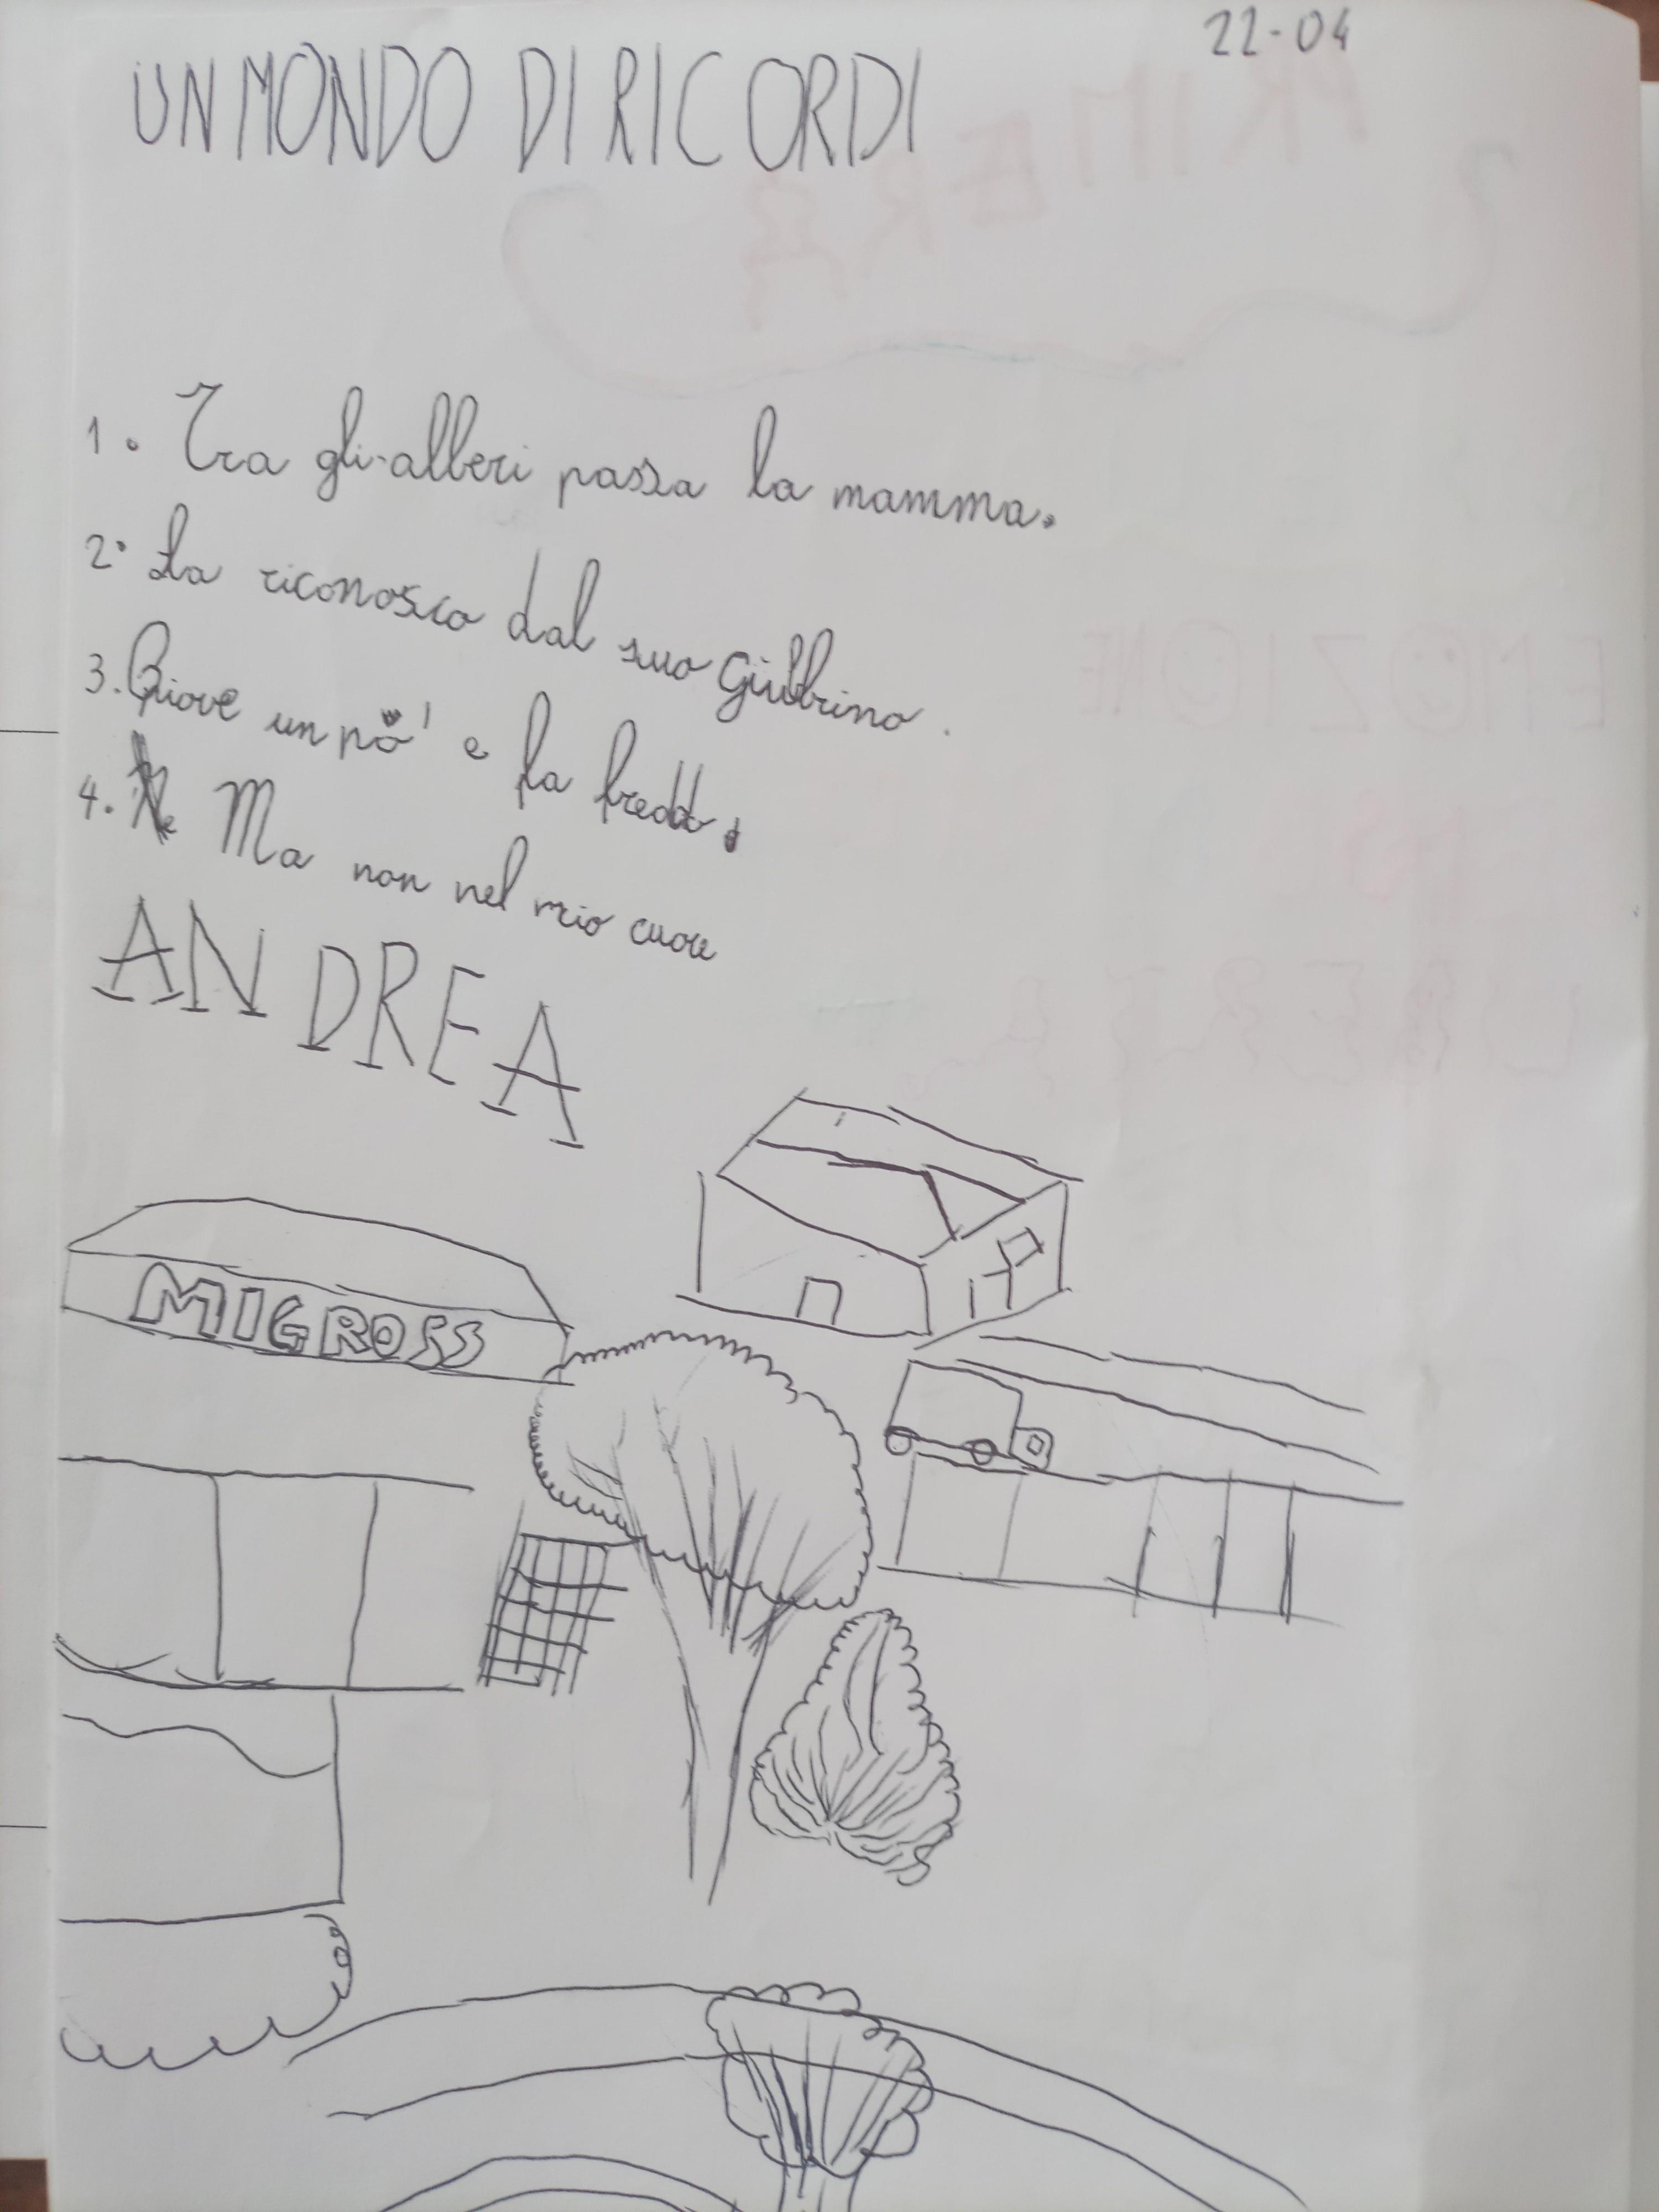 22-04
UN MONDO DI RICORDI
1. Tra gli alberi passa la mamma.
2. La riconosco dal suo giubbino.
3. Piove un pò' e fa freddo.
4. Ma non nel mio cuore
ANDREA
MIGROSS